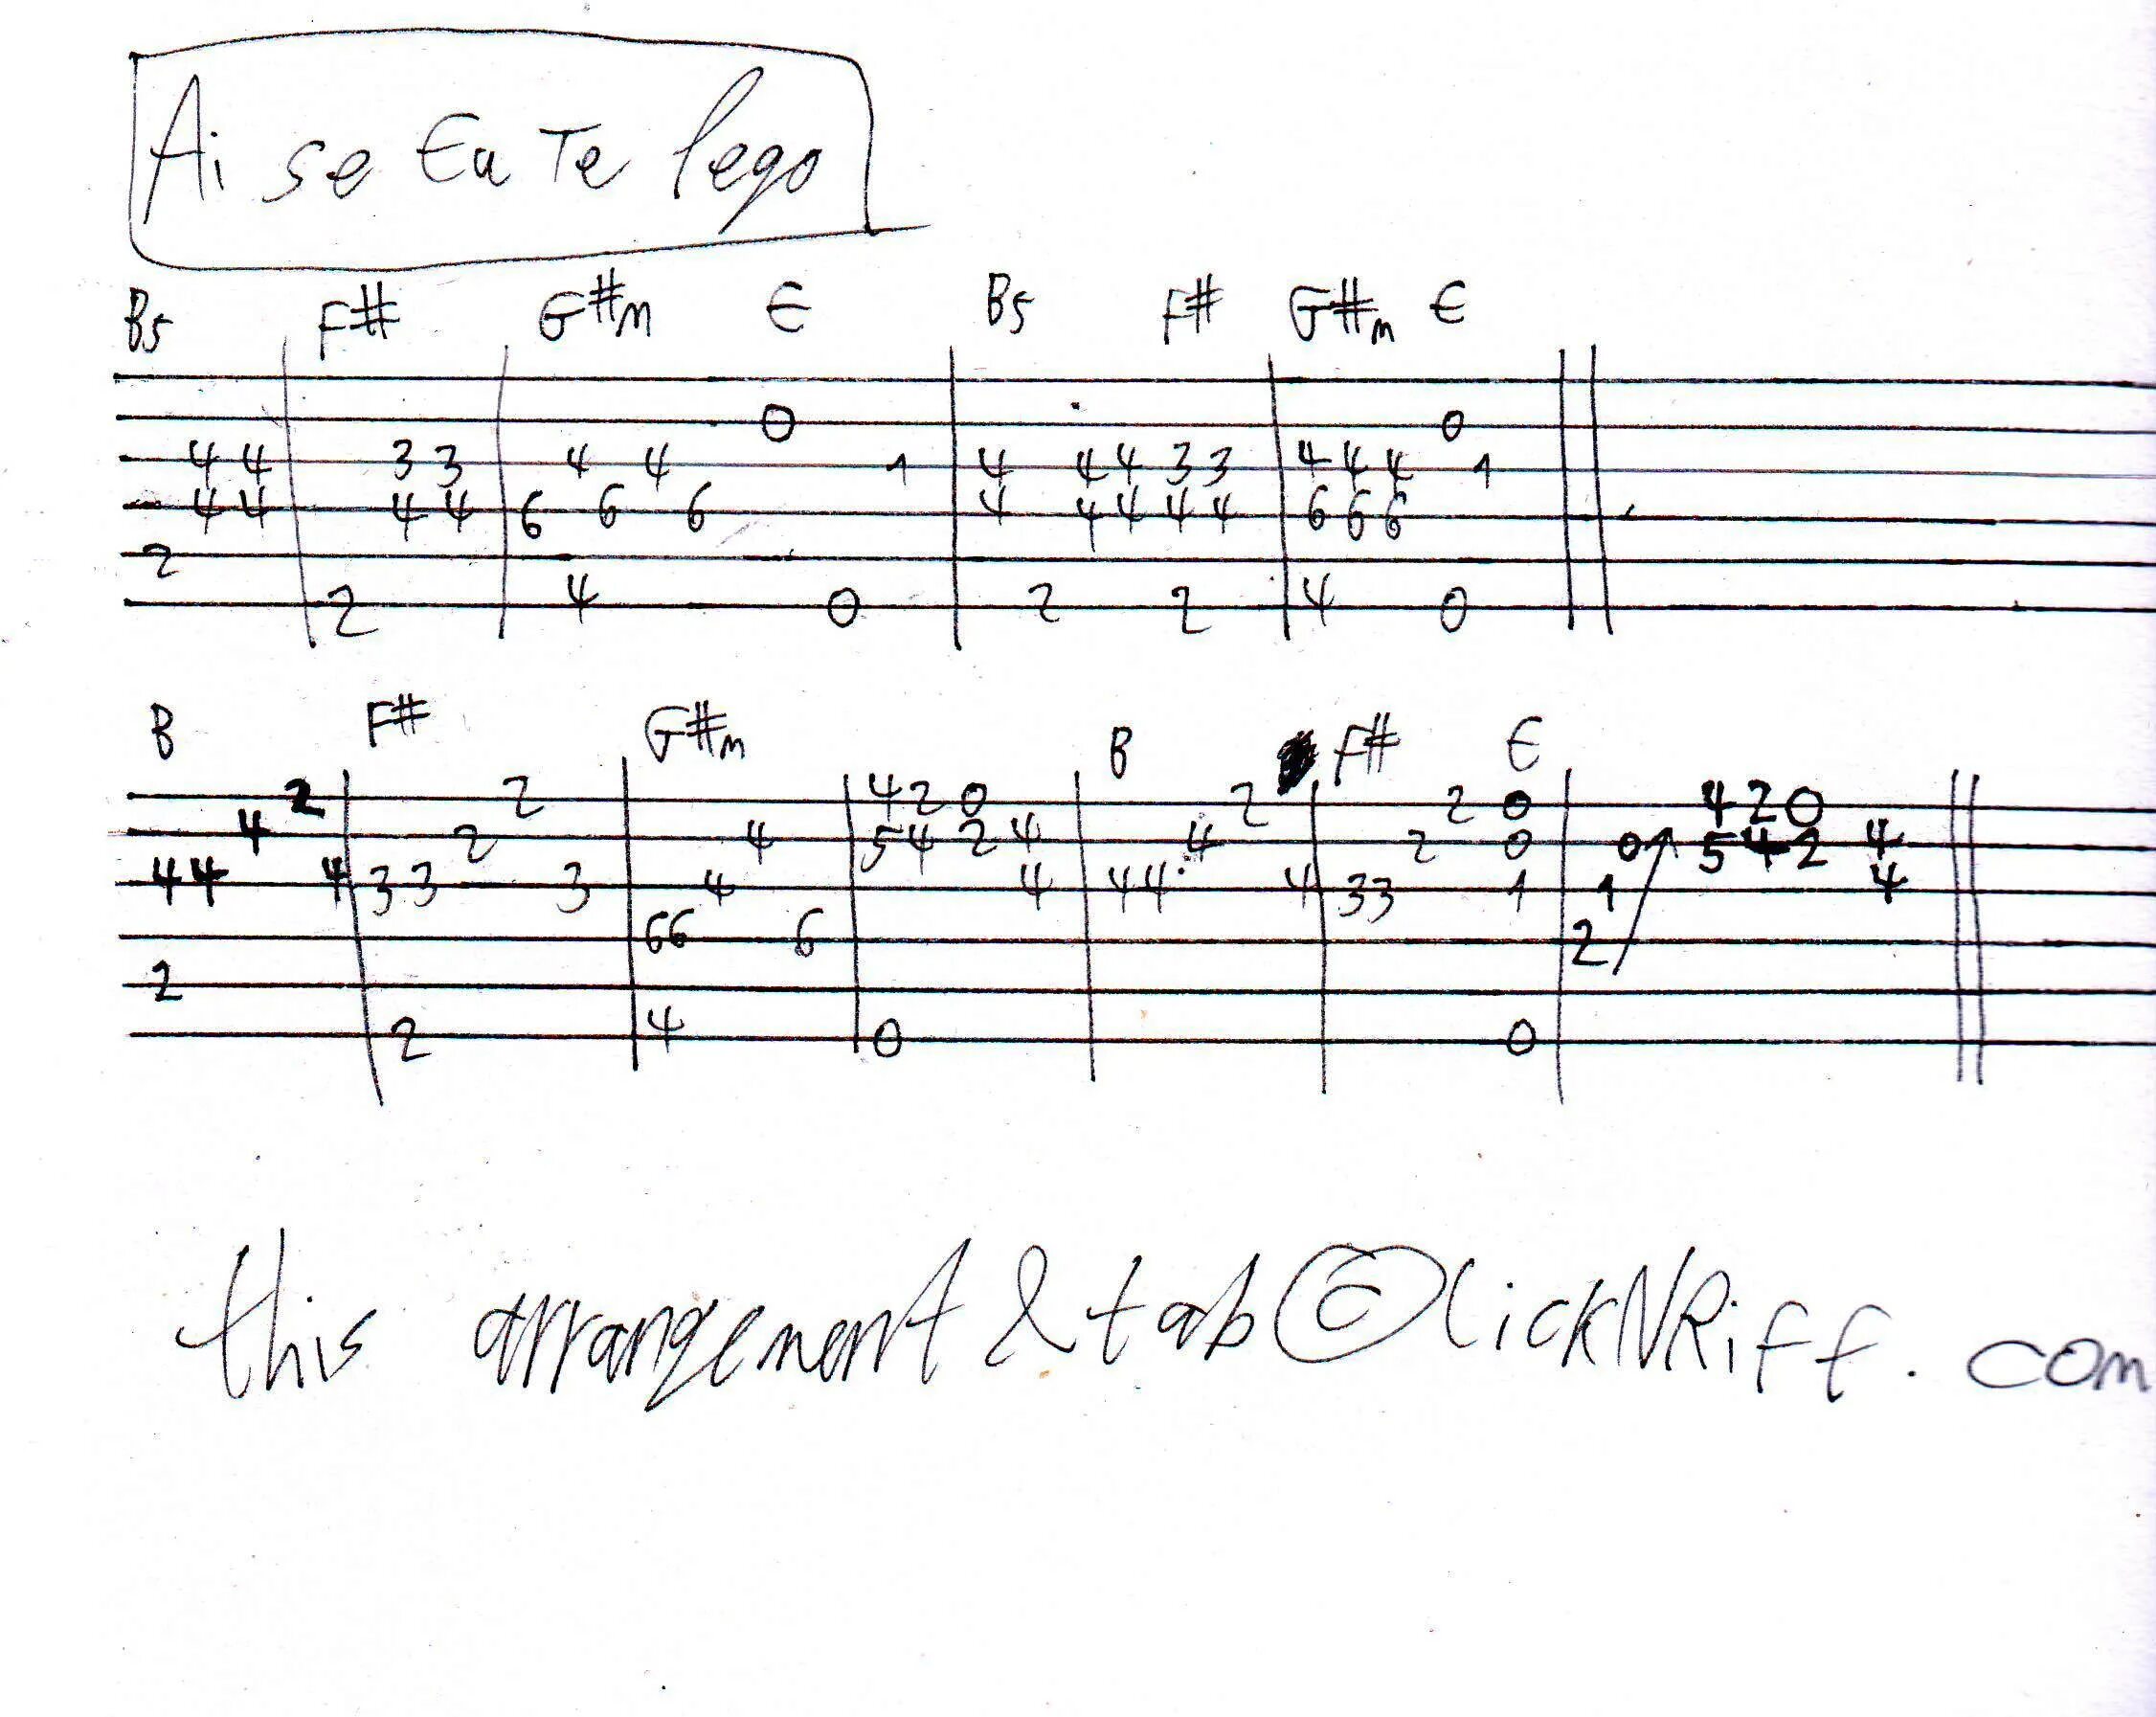 Ai se Eu Te Pego
B5 F# G#m E B5 F# G#m E
0 0
4 4 3 3 4 4 1 4 4 4 3 3 4 4 4 1
4 4 4 4 6 6 6 4 4 4 4 4 6 6 6
2
2 4 0 2 2 4 0
B F# G#m B F# E
2 2 4 2 0 2 2 0 4 2 0
4 2 4 5 4 2 4 4 2 0 0 5 4 2 4
4 4 4 3 3 3 4 4 4 4 4 3 3 1 1 4
6 6 6 2
2
2 4 0 0
this arrangement & tab © LickNRiff.com